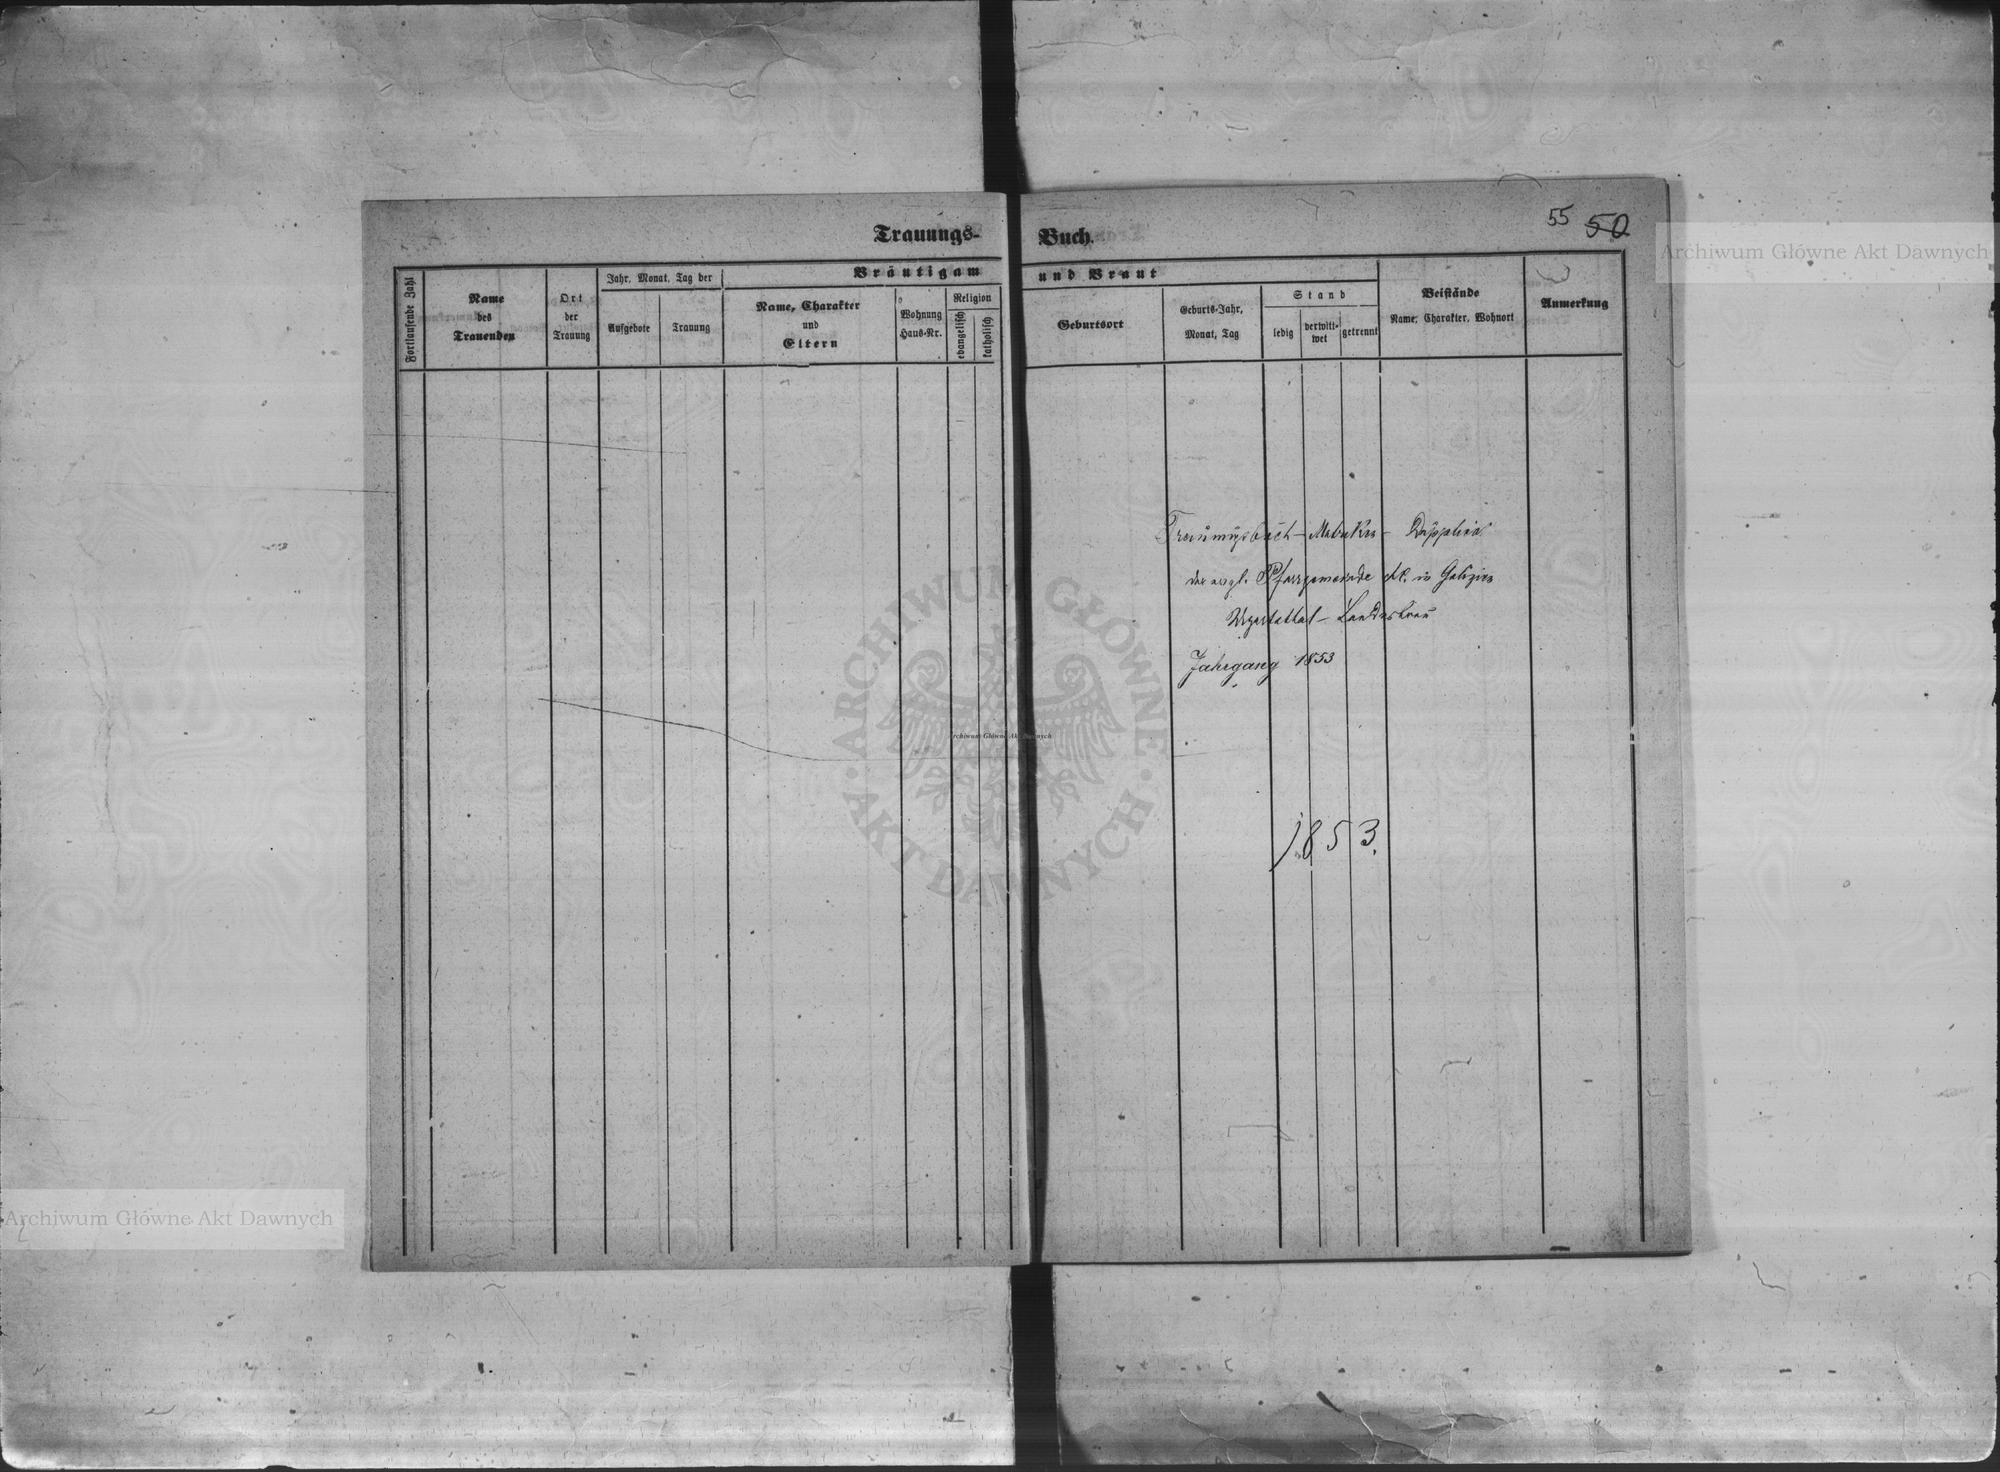 55 50
Trauungs- Buch.
Archiwum Główne Akt Dawnych
Fortlaufende Zahl
Name
des
Trauenden
Ort
der
Trauung
Jahr, Monat, Tag der
Aufgebote
Trauung
Bräutigam und Braut
Name, Charakter
und
Eltern
Wohnung
Haus-Nr.
Religion
evangelisch
katholisch
Geburtsort
Geburts-Jahr,
Monat, Tag
Stand
ledig
verwitt-
wet
getrennt
Beistände
Name, Charakter, Wohnort
Anmerkung
Trauungsbuch-Matriken-Duplicat
der evgl. Pfarrgemeinde in Galizien
Ugartsthal - Landestreu
Jahrgang 1853
ARCHIWUM GŁÓWNE
AKT DAWNYCH
Archiwum Główne Akt Dawnych
1853.
Archiwum Główne Akt Dawnych